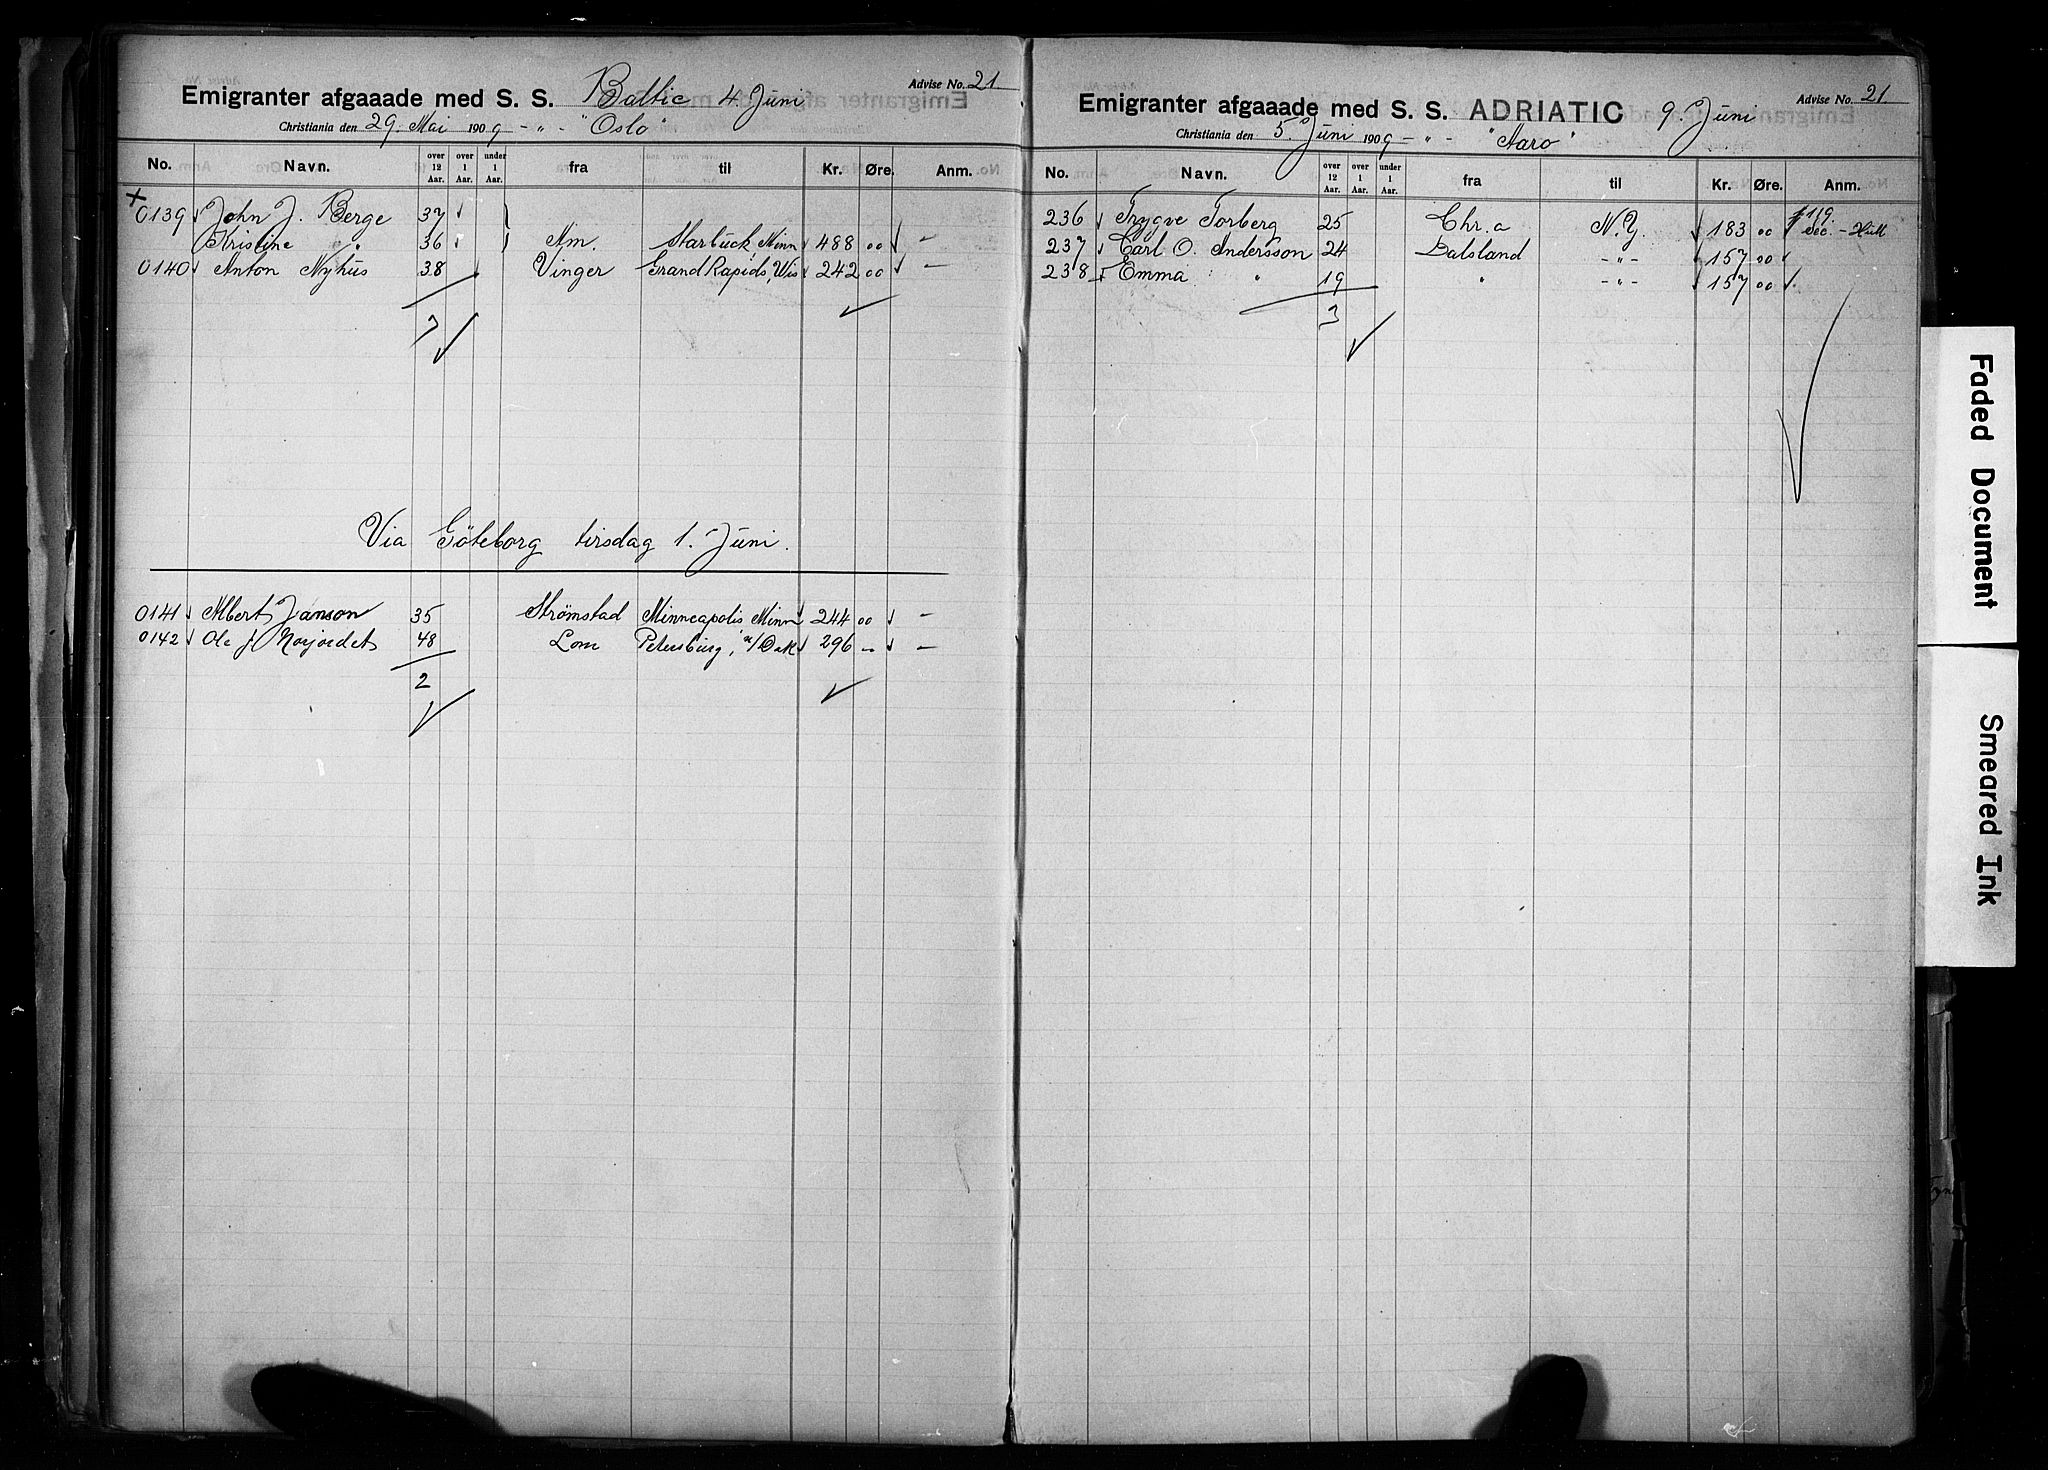 Advise No. 21
Emigranter afgaaade med S. S. Baltic 4. Juni
Christiania den 29. Mai 1909 - „ - "Oslo"
No. Navn. over 12 Aar. over 1 Aar. under 1 Aar. fra til Kr. Øre. Anm.
0139 John J. Berge 37
Kristine " 36 Am. Starbuck Minn 488 00 -
0140 Anton Nyhus 38 Vinger Grand Rapids, Wis 242 00 -
3
Via Göteborg tirsdag 1. Juni.
0141 Albert Janson 35 Strømstad Minneapolis Minn 244 00 -
0142 Ole J 48 Lom Petersburg, N/Dak 296 - -
2
Advise No. 21.
Emigranter afgaaade med S. S. ADRIATIC 9. Juni
Christiania den 5. Juni 1909 - „ - "Aaro"
No. Navn. over 12 Aar. over 1 Aar. under 1 Aar. fra til Kr. Øre. Anm.
236 Trygve Torberg 25 Chr.a N.Y. 183 00 $119. sec. - Hull
237 Carl O. Andersson 24 Dalsland - „ - 157 00
238 Emma " 19 " - „ - 157 00
3
Faded Document
Smeared Ink